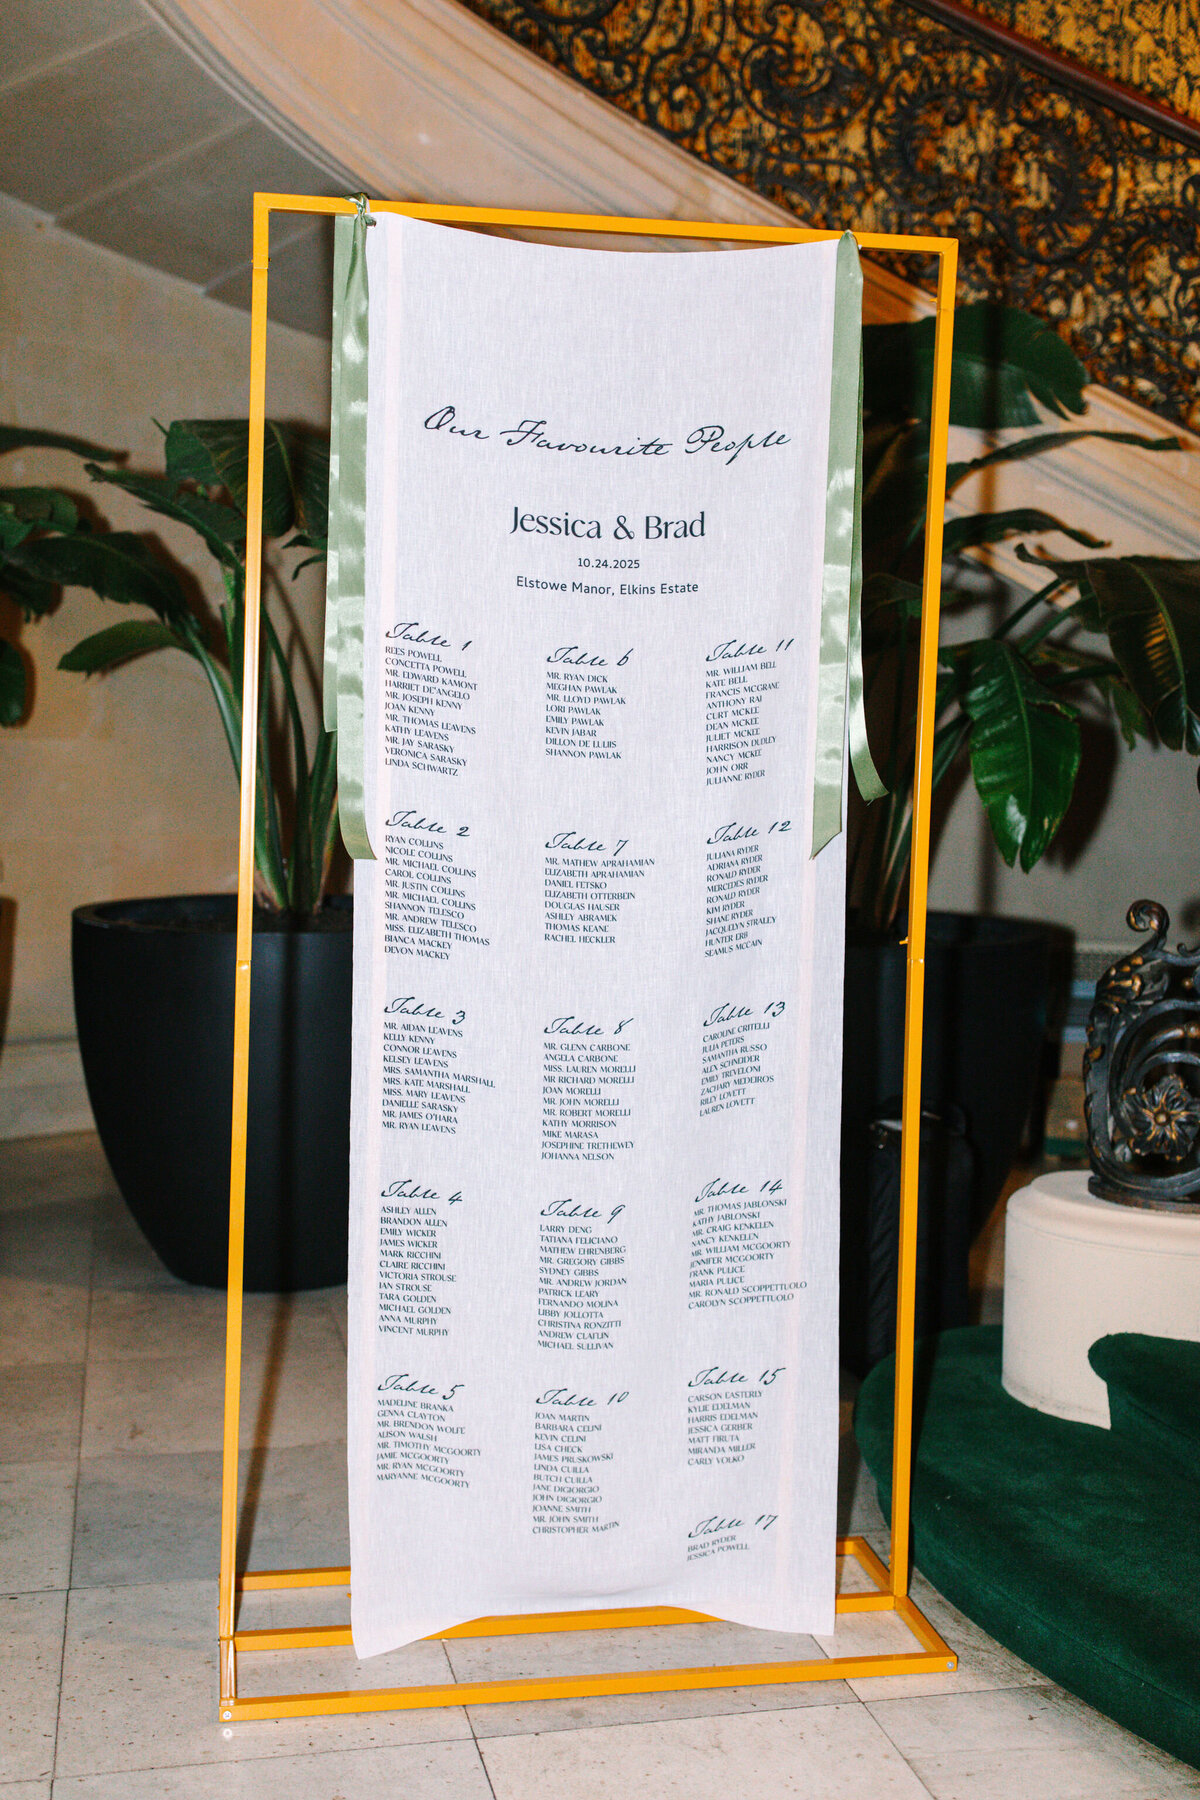 Our Favourite People
Jessica & Brad
10.24.2025
Elstowe Manor, Elkins Estate
Table 1
REES POWELL
CONCETTA POWELL
MR. EDWARD KAMONT
HARRIET DE'ANGELO
MR. JOSEPH KENNY
JOAN KENNY
MR. THOMAS LEAVENS
KATHY LEAVENS
MR. JAY SARASKY
VERONICA SARASKY
LINDA SCHWARTZ
Table 2
RYAN COLLINS
NICOLE COLLINS
MR. MICHAEL COLLINS
CAROL COLLINS
MR. JUSTIN COLLINS
MR. MICHAEL COLLINS
SHANNON TELESCO
MR. ANDREW TELESCO
MISS. ELIZABETH THOMAS
BIANCA MACKEY
DEVON MACKEY
Table 3
MR. AIDAN LEAVENS
KELLY KENNY
CONNOR LEAVENS
KELSEY LEAVENS
MRS. SAMANTHA MARSHALL
MRS. KATE MARSHALL
MISS. MARY LEAVENS
DANIELLE SARASKY
MR. JAMES O'HARA
MR. RYAN LEAVENS
Table 4
ASHLEY ALLEN
BRANDON ALLEN
EMILY WICKER
JAMES WICKER
MARK RICCHINI
CLAIRE RICCHINI
VICTORIA STROUSE
IAN STROUSE
TARA GOLDEN
MICHAEL GOLDEN
ANNA MURPHY
VINCENT MURPHY
Table 5
MADELINE BRANKA
GENNA CLAYTON
MR. BRENDON WOLFE
ALISON WALSH
MR. TIMOTHY MCGOORTY
JAMIE MCGOORTY
MR. RYAN MCGOORTY
MARYANNE MCGOORTY
Table 6
MR. RYAN DICK
MEGHAN PAWLAK
MR. LLOYD PAWLAK
LORI PAWLAK
EMILY PAWLAK
KEVIN JABAR
DILLON DE LULIIS
SHANNON PAWLAK
Table 7
MR. MATHEW APRAHAMIAN
ELIZABETH APRAHAMIAN
DANIEL FETSKO
ELIZABETH OTTERBEIN
DOUGLAS HAUSER
ASHLEY ABRAMEK
THOMAS KEANE
RACHEL HECKLER
Table 8
MR. GLENN CARBONE
ANGELA CARBONE
MISS. LAUREN MORELLI
MR RICHARD MORELLI
JOAN MORELLI
MR. JOHN MORELLI
MR. ROBERT MORELLI
KATHY MORRISON
MIKE MARASA
JOSEPHINE TRETHEWEY
JOHANNA NELSON
Table 9
LARRY DENG
TATIANA FELICIANO
MATHEW EHRENBERG
MR. GREGORY GIBBS
SYDNEY GIBBS
MR. ANDREW JORDAN
PATRICK LEARY
FERNANDO MOLINA
LIBBY JOLLOTTA
CHRISTINA RONZITTI
ANDREW CLAFLIN
MICHAEL SULLIVAN
Table 10
JOAN MARTIN
BARBARA CELINI
KEVIN CELINI
LISA CHECK
JAMES PRUSKOWSKI
LINDA CUILLA
BUTCH CUILLA
JANE DIGIORGIO
JOHN DIGIORGIO
JOANNE SMITH
MR. JOHN SMITH
CHRISTOPHER MARTIN
Table 11
MR. WILLIAM BELL
KATE BELL
FRANCIS MCGRANE
ANTHONY RAI
CURT MCKEE
DEAN MCKEE
JULIET MCKEE
HARRISON DUDLEY
NANCY MCKEE
JOHN ORR
JULIANNE RYDER
Table 12
JULIANA RYDER
ADRIANA RYDER
RONALD RYDER
MERCEDES RYDER
RONALD RYDER
KIM RYDER
SHANE RYDER
JACQUELYN STRALEY
HUNTER ERB
SEAMUS MCCAIN
Table 13
CAROLINE CRITELLI
JULIA PETERS
SAMANTHA RUSSO
ALEX SCHNEIDER
EMILY TREVELONI
ZACHARY MEDEIROS
RILEY LOVETT
LAUREN LOVETT
Table 14
MR. THOMAS JABLONSKI
KATHY JABLONSKI
MR. CRAIG KENKELEN
NANCY KENKELEN
MR. WILLIAM MCGOORTY
JENNIFER MCGOORTY
FRANK PULICE
MARIA PULICE
MR. RONALD SCOPPETTUOLO
CAROLYN SCOPPETTUOLO
Table 15
CARSON EASTERLY
KYLIE EDELMAN
HARRIS EDELMAN
JESSICA GERBER
MATT FIRUTA
MIRANDA MILLER
CARLY VOLKO
Table 17
BRAD RYDER
JESSICA POWELL